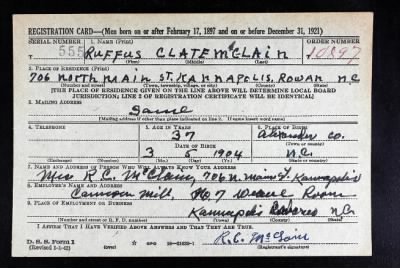 REGISTRATION CARD—(Men born on or after February 17, 1897 and on or before December 31, 1921)
SERIAL NUMBER 1. NAME (Print) ORDER NUMBER
555 RUFFUS CLATE McCLAIN 10897
(First) (Middle) (Last)
2. PLACE OF RESIDENCE (Print)
706 NORTH MAIN ST. KANNAPOLIS, ROWAN N.C
(Number and street) (Town, township, village, or city) (County) (State)
[THE PLACE OF RESIDENCE GIVEN ON THE LINE ABOVE WILL DETERMINE LOCAL BOARD
JURISDICTION; LINE 2 OF REGISTRATION CERTIFICATE WILL BE IDENTICAL]
3. MAILING ADDRESS
Same
[Mailing address if other than place indicated on line 2. If same insert word same]
4. TELEPHONE 5. AGE IN YEARS 6. PLACE OF BIRTH
37 Alexander Co.
DATE OF BIRTH (Town or county)
3 5 1904 N.C.
(Exchange) (Number) (Mo.) (Day) (Yr.) (State or country)
7. NAME AND ADDRESS OF PERSON WHO WILL ALWAYS KNOW YOUR ADDRESS
Mrs R.C. McClain, 706 N. Main St. Kannapolis
8. EMPLOYER'S NAME AND ADDRESS
Cannon Mill, No. 7 Weave Room
9. PLACE OF EMPLOYMENT OR BUSINESS
Kannapolis Cabarrus N.C.
(Number and street or R. F. D. number) (Town) (County) (State)
I AFFIRM THAT I HAVE VERIFIED ABOVE ANSWERS AND THAT THEY ARE TRUE.
D. S. S. Form 1 R.C. McClain
(Revised 1-1-42) (over) GPO 16-21630-1 (Registrant's signature)